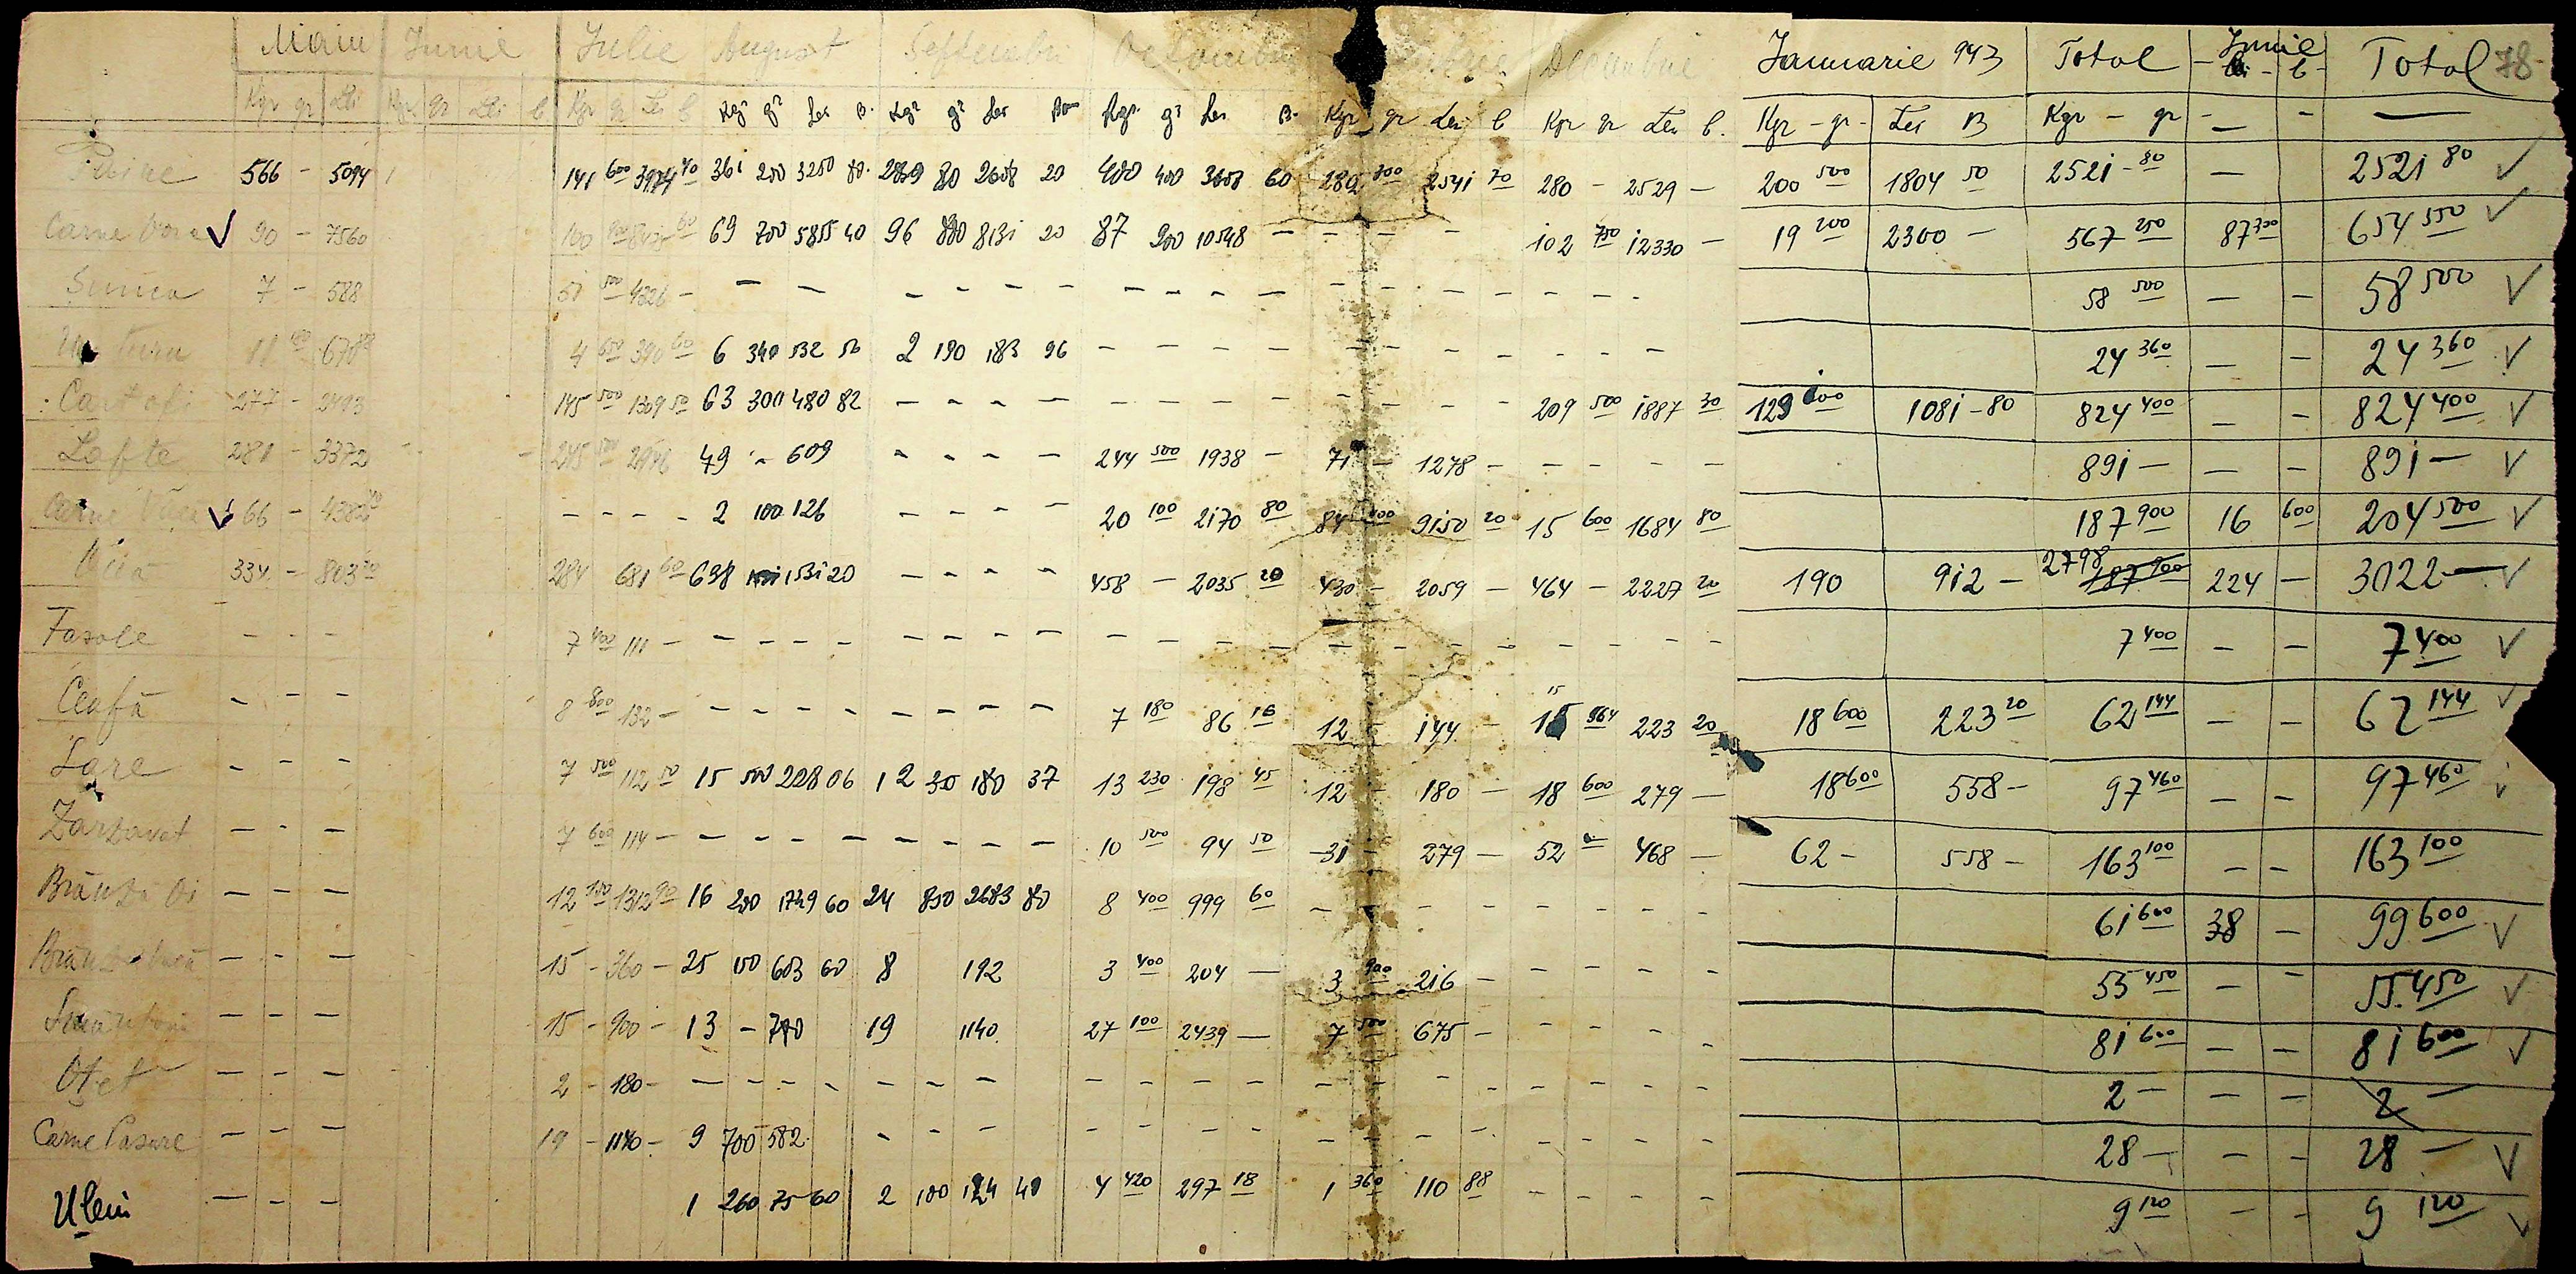 Maiu Iunie Iulie August Septembri Octombrie Decembrie Ianuarie 943 Total Iunie Total 78-
Kgr gr Lei Kgr gr Lei b Kgr gr Lei b Kgr gr Lei B. Kgr gr Lei Ban Kgr. gr Lei B. Kgr gr Lei b Kgr gr Lei b. Kgr - gr - Lei B Kgr - gr - — - —
Pâine 566 - 5094 141 600 3974 40 361 200 3250 80. 2839 80 2608 20 400 400 3608 60 280 300 2541 70 280 - 2529 - 200 500 1804 50 2521 - 80 — 2521 80 ✓
Carne Oaia ✓ 90 - 7560 100 60 69 700 5855 40 96 800 8131 20 87 900 10548 - - - - 102 750 12330 - 19 200 2300 - 567 250 87 300 654 550 ✓
Șunca 7 - 588 51 500 4326 - - - - - - - - - - - - - - - - - - 58 500 — - 58 500 ✓
11 678 4 650 390 60 6 340 532 56 2 190 183 96 - - - - - - - - - - - 24 360 — - 24 360 ✓
Cartofi 277 - 2493 145 500 1309 50 63 300 480 82 - - - - - - - - - - - - 209 500 1887 30 129 600 1081 - 80 824 400 — - 824 400 ✓
Lapte 281 - 3372 245 500 2946 49 - 609 - - - - 244 500 1938 - 71 - 1278 - - - - - 891 - — - 891 — ✓
Carne Vaca ✓ 66 - 4382 - - - - 2 100 126 - - - - 20 100 2170 80 84 100 9150 20 15 600 1684 80 187 900 16 600 204 500 ✓
Ouă 334 - 803 284 681 60 638 1531 20 - - - - 458 - 2035 20 430 - 2059 - 464 - 2227 20 190 912 - 2798 187 900 224 - 3022 — ✓
Fasole - - - 7 400 111 - - - - - - - - - - - - - - - - - - - - 7 400 - - 7 400 ✓
Ceafă - - - 8 800 132 - - - - - - - - - 7 180 86 16 12 - 144 - 15 964 223 20 18 600 223 20 62 144 - - 62 144 ✓
Sare - - - 7 500 112 50 15 500 228 06 12 30 180 37 13 230 198 45 12 - 180 - 18 600 279 - 18 600 558 - 97 460 - - 97 460 ✓
Zarzavat - - - 7 600 114 - - - - - - - - - 10 500 94 50 31 - 279 - 52 468 - 62 - 558 - 163 100 - - 163 100
Brânză Oi - - - 12 150 1312 90 16 200 1749 60 24 850 2683 80 8 400 999 60 - - - - - - - - 61 600 38 - 99 600 ✓
- - - 15 - 360 - 25 150 603 60 8 192 3 400 204 - 3 900 216 - - - - - 55 450 - - 55.450 ✓
Smântână - - - 15 - 900 - 13 - 780 19 1140 27 100 2439 - 7 500 675 - - - - - 81 600 - - 81 600 ✓
Oțet - - - 2 - 180 - - - - - - - - - - - - - - - - - - - - 2 - - - 2 -
Carne Pasăre - - - 19 - 1140 - 9 700 582 - - - - - - - - - - - - - - - 28 - - - 28 - ✓
Uleiu - - - 1 260 75 60 2 100 124 40 4 420 297 18 1 360 110 88 - - - - 9 120 - - 9 120 ✓